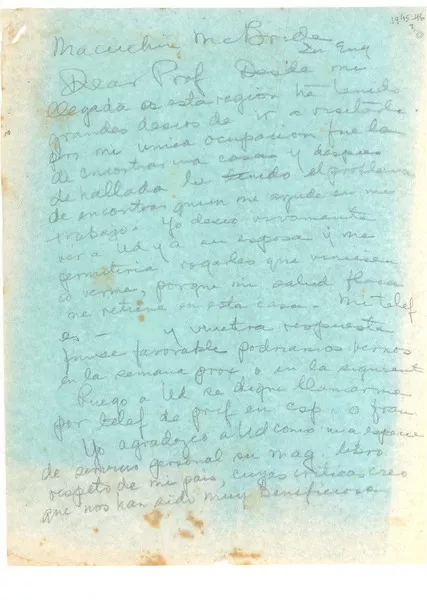 1945-46
Mc Bride
Dear Prof Desde mi
llegada a esta región he tenido
grandes deseos de ir a visitarle
por mi unica ocupacion fue la
de encontrar una casa y despues
de hallada he tenido el problema
de encontrar quien me ayude en mi
trabajo. Yo deseo vivamente
ver a Ud y a su esposa y me
permitiria rogarles que viniesen
a verme, porque mi salud
me retiene en esta casa. Mi telef
es — y vuestra respuesta
fuese favorable podriamos vernos
en la semana prox o en la siguiente
Ruego a Ud se digne llamarme
por telef de pref en esp. o
Yo agradezco a Ud como una especie
de servicio personal su mag. libro
respeto de mi pais, cuyas criticas creo
que nos han sido muy beneficiosa